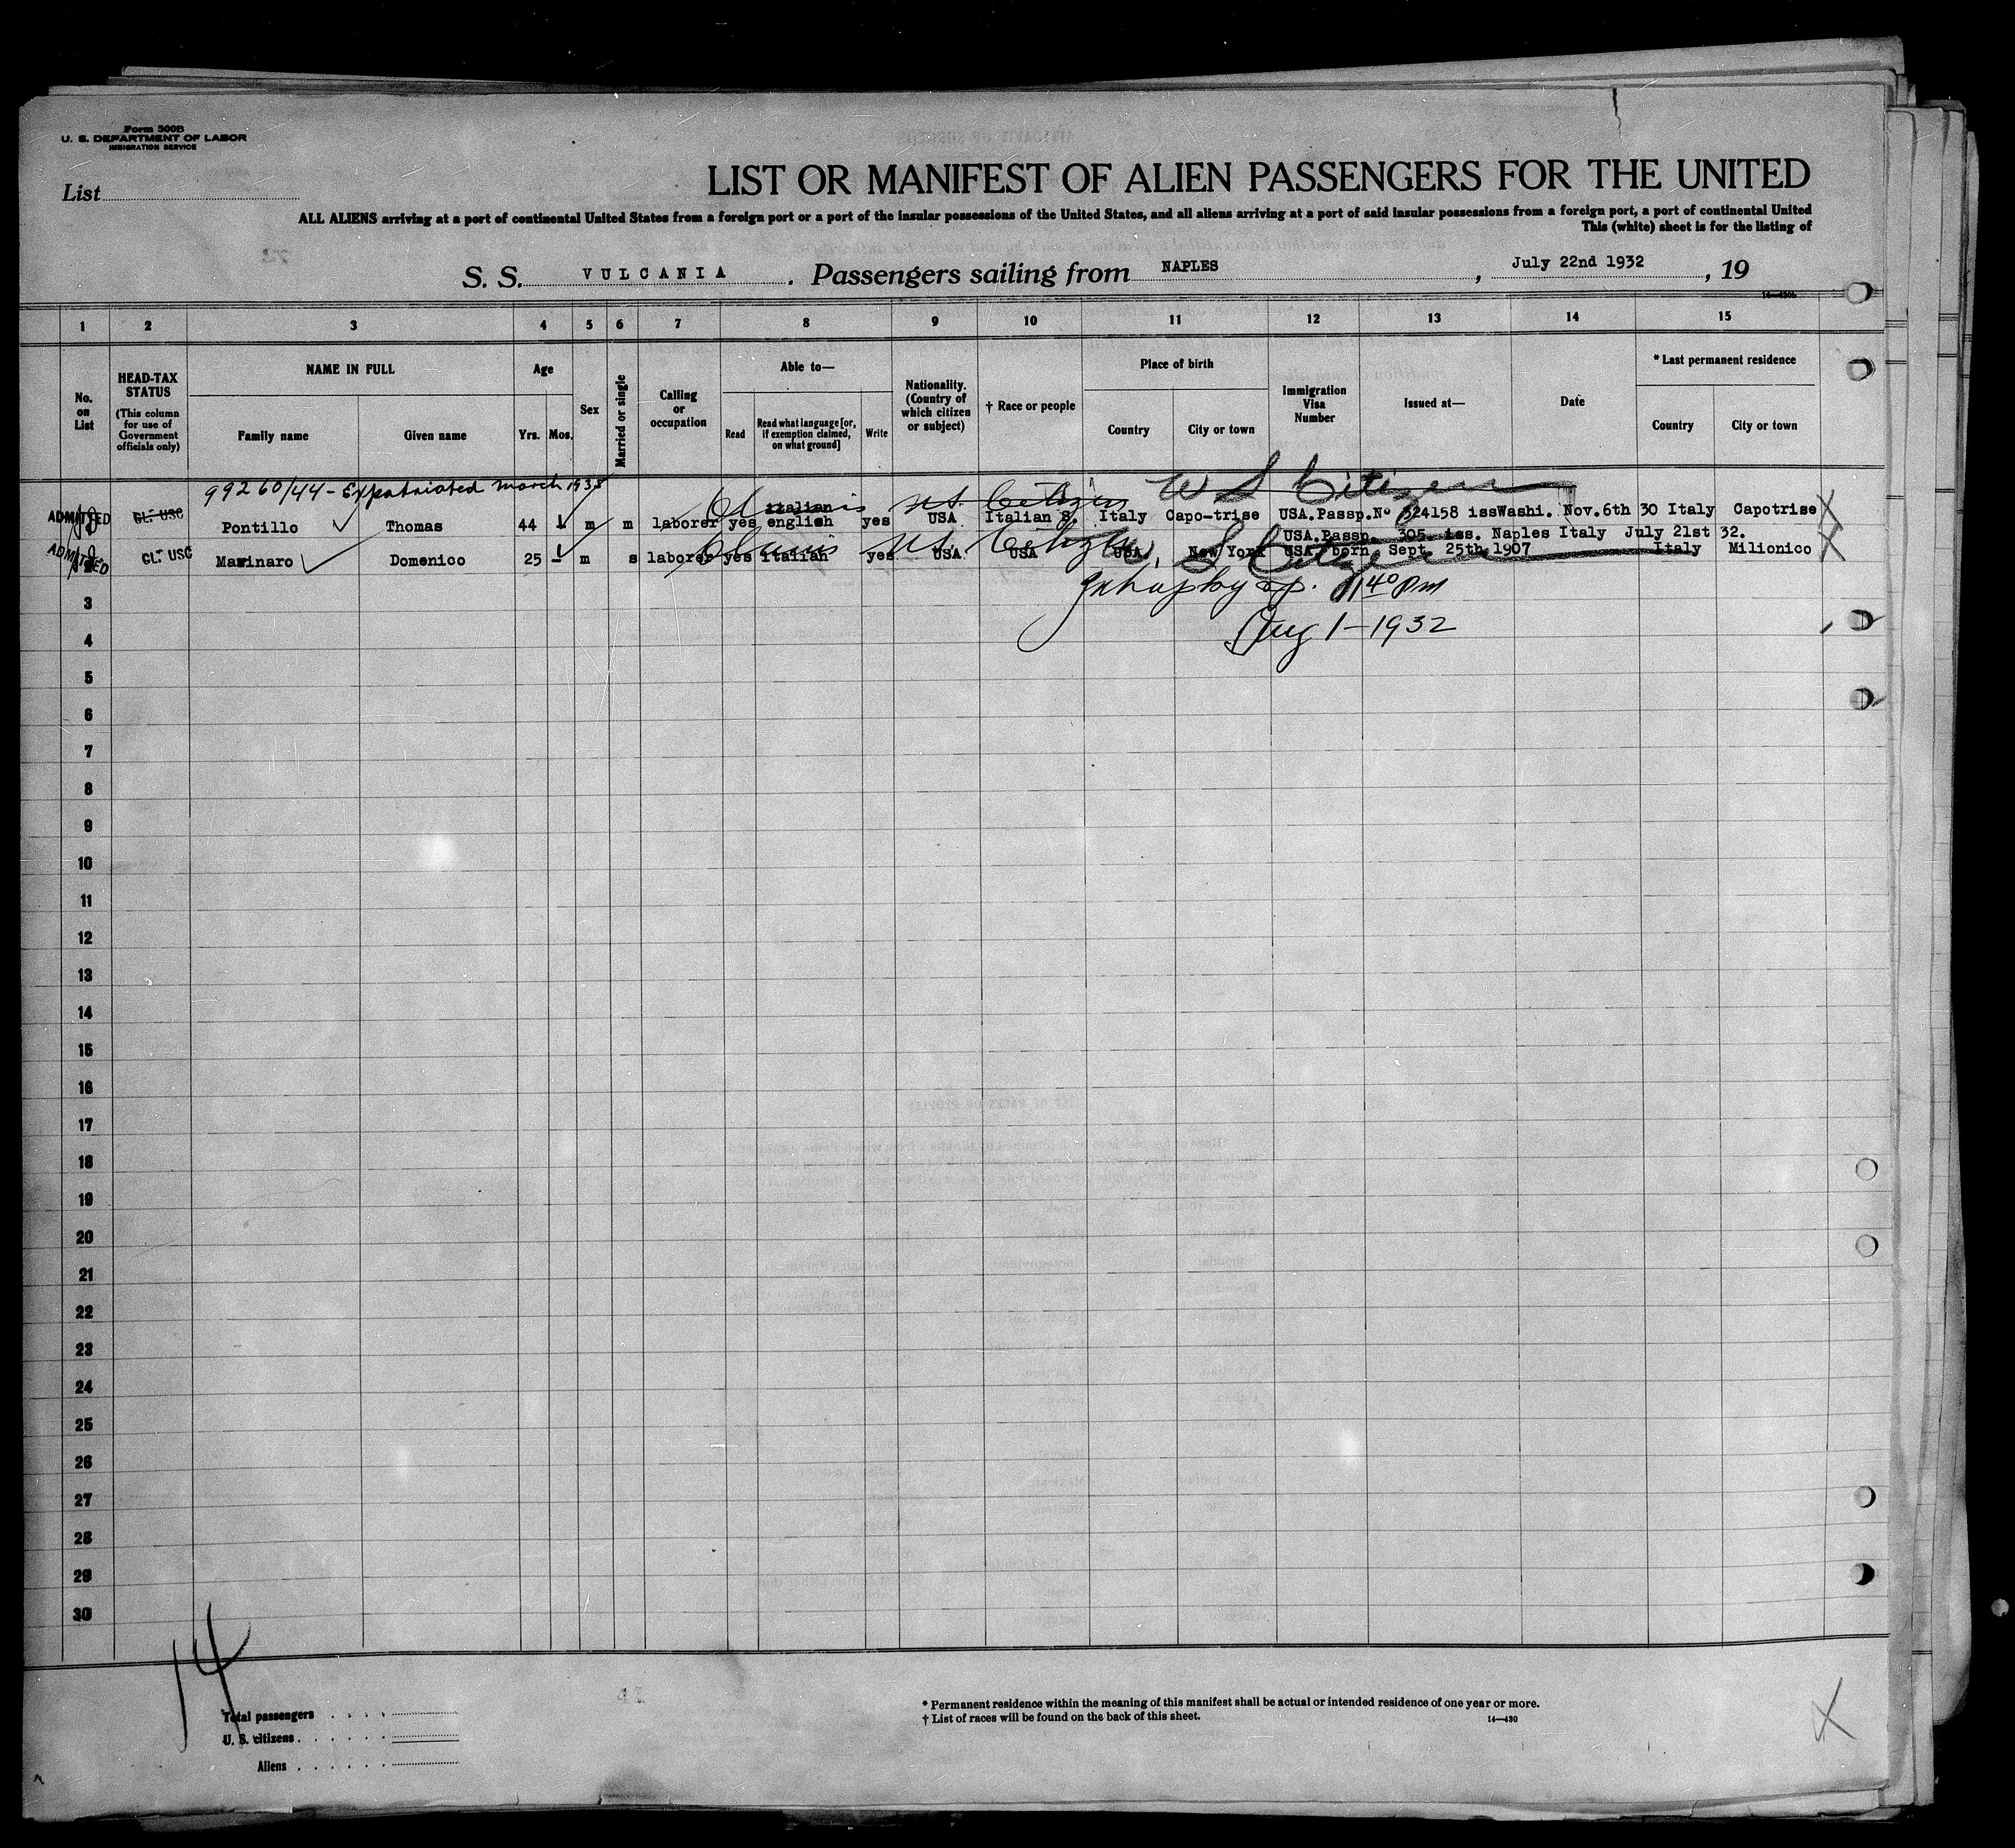 Form 500B
U. S. DEPARTMENT OF LABOR
IMMIGRATION SERVICE
List
LIST OR MANIFEST OF ALIEN PASSENGERS FOR THE UNITED
ALL ALIENS arriving at a port of continental United States from a foreign port or a port of the insular possessions of the United States, and all aliens arriving at a port of said insular possessions from a foreign port, a port of continental United
This (white) sheet is for the listing of
S. S. VULCANIA. Passengers sailing from NAPLES, July 22nd 1932, 19
1 2 3 4 5 6 7 8 9 10 11 12 13 14 15
No. on List
HEAD-TAX STATUS (This column for use of Government officials only)
NAME IN FULL
Family name
Given name
Age
Yrs. Mos.
Sex
Married or single
Calling or occupation
Able to—
Read
Read what language [or, if exemption claimed, on what ground]
Write
Nationality. (Country of which citizen or subject)
† Race or people
Place of birth
Country
City or town
Immigration Visa Number
Issued at—
Date
* Last permanent residence
Country
City or town
99260/44 - Expatriated March
U S Citizen
Italian
ADMITTED GL. USC Pontillo Thomas 44 m m laborer yes english yes USA Italian S. Italy Capo-trise USA.Passp.No 324158 issWashi. Nov.6th 30 Italy Capotrise
USA.Passp. 305. iss. Naples Italy July 21st 32.
ADMITTED GL. USC Masinaro Domenico 25 m s laborer yes italian yes USA USA USA New York USA. born Sept. 25th 1907 Italy Milionico
Citizen
1140 pm
Aug 1-1932
3
4
5
6
7
8
9
10
11
12
13
14
15
16
17
18
19
20
21
22
23
24
25
26
27
28
29
30
14
Total passengers
U. S. citizens
Aliens
* Permanent residence within the meaning of this manifest shall be actual or intended residence of one year or more.
† List of races will be found on the back of this sheet.
14—430